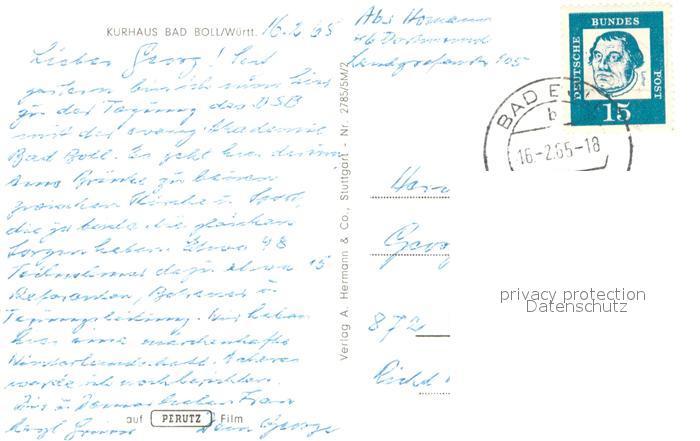 KURHAUS BAD BOLL/Württ. 16.2.65
Lieber Georg! Seit
gestern bin ich nun hier
zu der Tagung des DSB
mit der evang. Akademie
Bad Boll. Es geht hier darum,
eine Brücke zu bauen
zwischen Kirche u. Sport,
die ja beide die gleichen
Sorgen haben. Etwa 48
Teilnehmer dazu etwa 15
Referenten, Betreuer u.
Tagungsleitung. Wir haben
hier eine märchenhafte
Winterlandschaft. Näheres
werde ich noch berichten.
Dir u. Deiner lieben Frau
herzl. Grüsse Dein George
auf PERUTZ Film
Verlag A. Hermann & Co., Stuttgart - Nr. 2785/5M/2
Abs. Homann
46 Dortmund
Landgrafenstr. 105
DEUTSCHE BUNDES POST
15
BAD
b
16-2.65-18
Herrn
Georg
872
privacy protection
Datenschutz